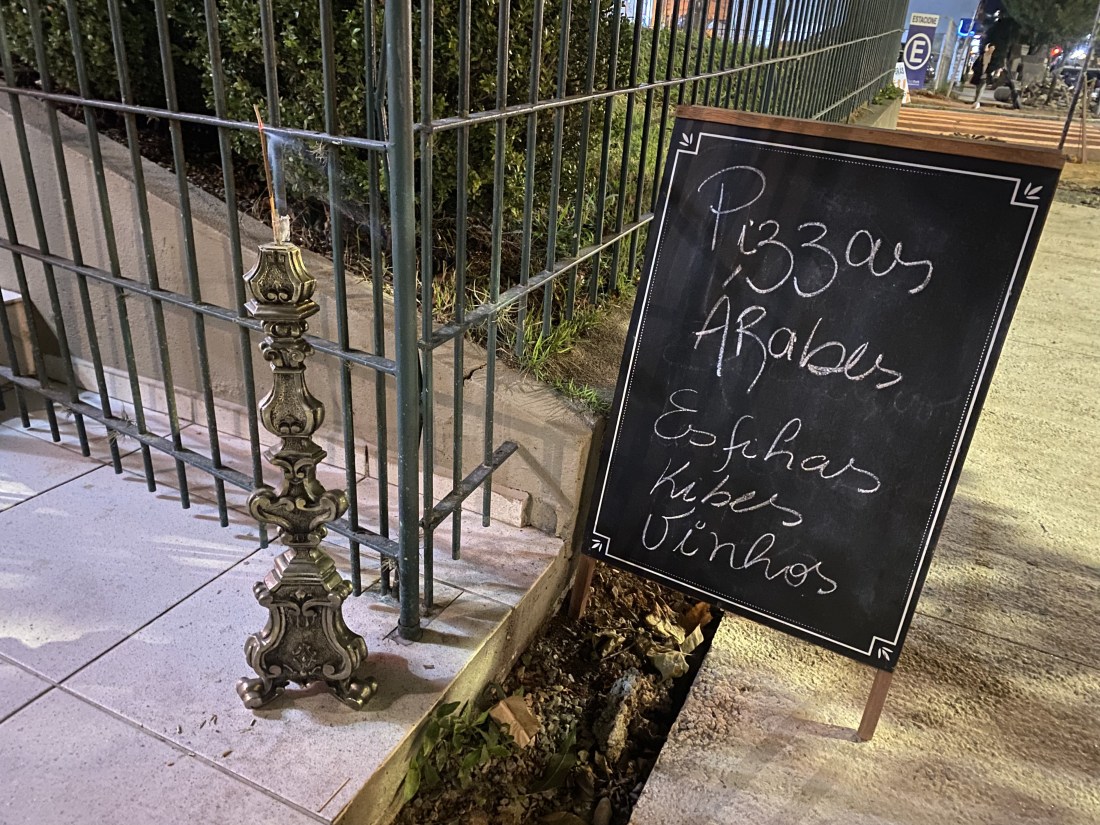 ESTACIONE
E
Pizzas
Árabes
Esfihas
Kibes
Vinhos